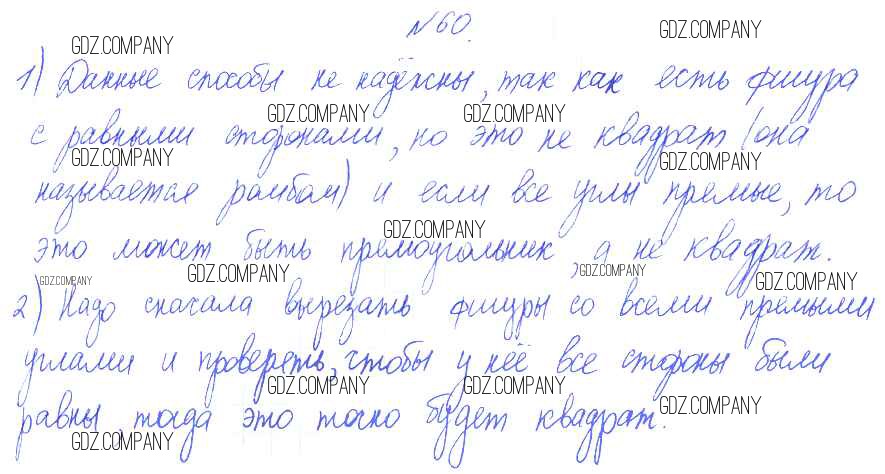 №60.
GDZ.COMPANY GDZ.COMPANY
1) Данные способы не надёжны, так как есть фигура
GDZ.COMPANY GDZ.COMPANY
с равными сторонами, но это не квадрат (она
GDZ.COMPANY GDZ.COMPANY
называется ромбом) и если все углы прямые, то
GDZ.COMPANY
это может быть прямоугольник, а не квадрат.
GDZ.COMPANY GDZ.COMPANY GDZ.COMPANY GDZ.COMPANY
2) Надо сначала вырезать фигуры со всеми прямыми
углами и проверять, чтобы у неё все стороны были
GDZ.COMPANY GDZ.COMPANY
равны, тогда это точно будет квадрат.
GDZ.COMPANY GDZ.COMPANY